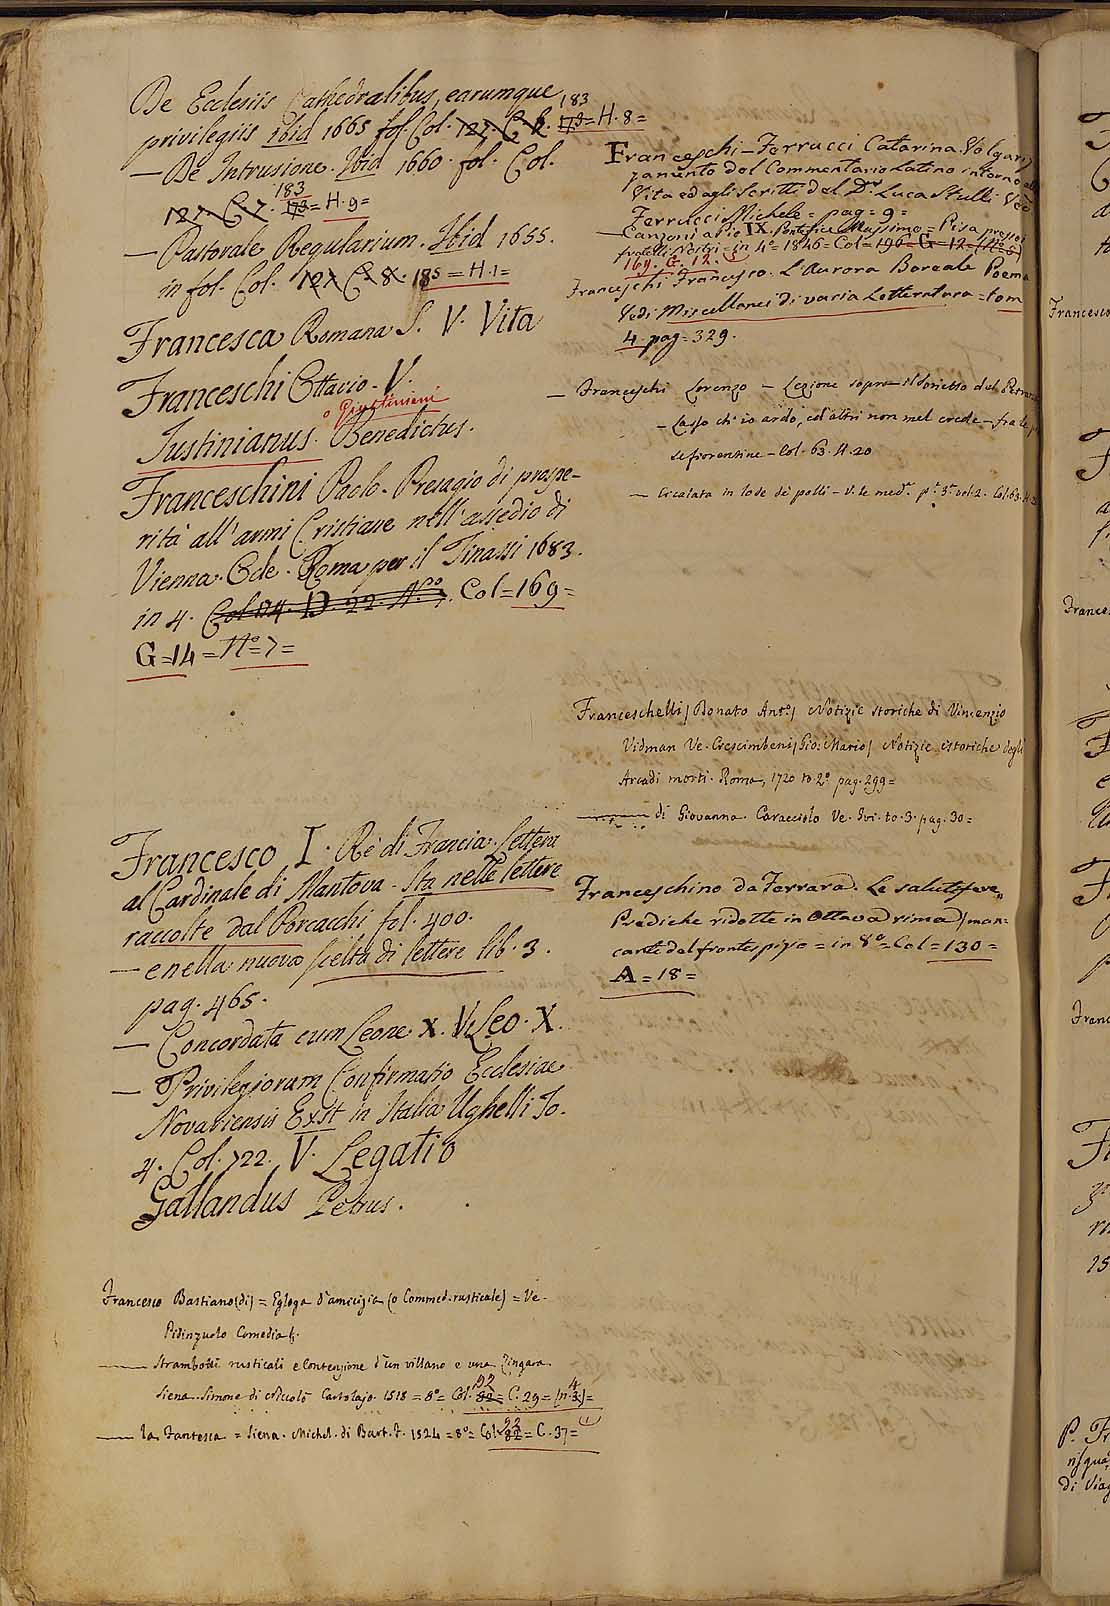 De Ecclesiis Cathedralibus, earumque
privilegiis Ibid 1665 fol. Col. 127. C. 183 173 = H. 8 =
— De Intrusione. Ibid 1660. fol. Col.
127. C. 7. 183 173 = H. 9 =
— Pastorale Regularium. Ibid 1655.
in fol. Col. 127 C. 8. 185 = H. 1 =
Francesca Romana S. V. Vita
Franceschi Ottavio. V.
o Giustiniani
Iustinianus. Benedictus.
Franceschini Paolo. Presagio di prospe-
rità all'armi Cristiane nell'assedio di
Vienna. Ode. Roma per il Tinassi 1683.
in 4. Col. 54. D. 22. N.º 7. Col = 169 =
G = 14 = Nº = 7 =
Francesco I. Rè di Francia. Lettera
al Cardinale di Mantova. Sta nelle lettere
raccolte dal Porcacchi fol. 400.
— e nella nuova scelta di lettere lib. 3.
pag. 465.
— Concordata cum Leone X. V. Leo. X.
— Privilegiorum Confirmatio Ecclesiae
Novariensis Exst in Italia Ughelli To.
4. Col. 722. V. Legatio
Gallandus Petrus.
Francesco Bastiano (di) = Egloga d'amicizia (o Commed. rusticale) = Ve.
Pidinzuolo Comedia
— Strambotti rusticali e Contenzione d'un villano e una Zingara
Siena. Simone di Niccolò Cartolajo. 1518 = 8º = Col. 92 82 = C. 29 = (n. 4 3) =
— La Fantesca = Siena. Michel. di Bart. F. 1524 = 8º = Col. 92 82 = C. 37 = (1)
Franceschi = Ferrucci Catarina. Volgariz
zamento del Commentario Latino intorno alla
Vita ed agli scritti del Dr. Luca Stulli. Ved
Ferrucci Michele = pag = 9 =
— Canzoni a Pio IX. Pontefice Massimo = Pisa presso i
fratelli Nistri = in 4º = 1846 = Col = 196 = G = 12 = (Nº = 5)
169. G. 12. 5
Franceschi Francesco. L'Aurora Boreale Poema
Vedi Miscellanei di varia Letteratura = tom
4. pag = 329.
— Franceschi Lorenzo — Lezione sopra il Sonetto del Petrarca
— Lasso ch'io ardo, ed altri non mel crede — fra le
se fiorentine — Col. 63. H. 20
— Cicalata in lode dei polli — V. le med.e p.te 3.a vol. 2. Col. 63. H.
Franceschelli / Donato Ant.º / Notizie storiche di Vincenzio
Vidman Ve. Crescimbeni / Gio: Mario / Notizie istoriche degli
Arcadi morti. Roma, 1720 to. 2º pag. 299 =
— di Giovanna Caracciolo Ve. Ivi. to. 3. pag. 30 =
Franceschino da Ferrara. Le salutifere
Prediche ridotte in Ottava rima / man=
cante del frontespizio = in 8º = Col = 130 =
A = 18 =
Francesco